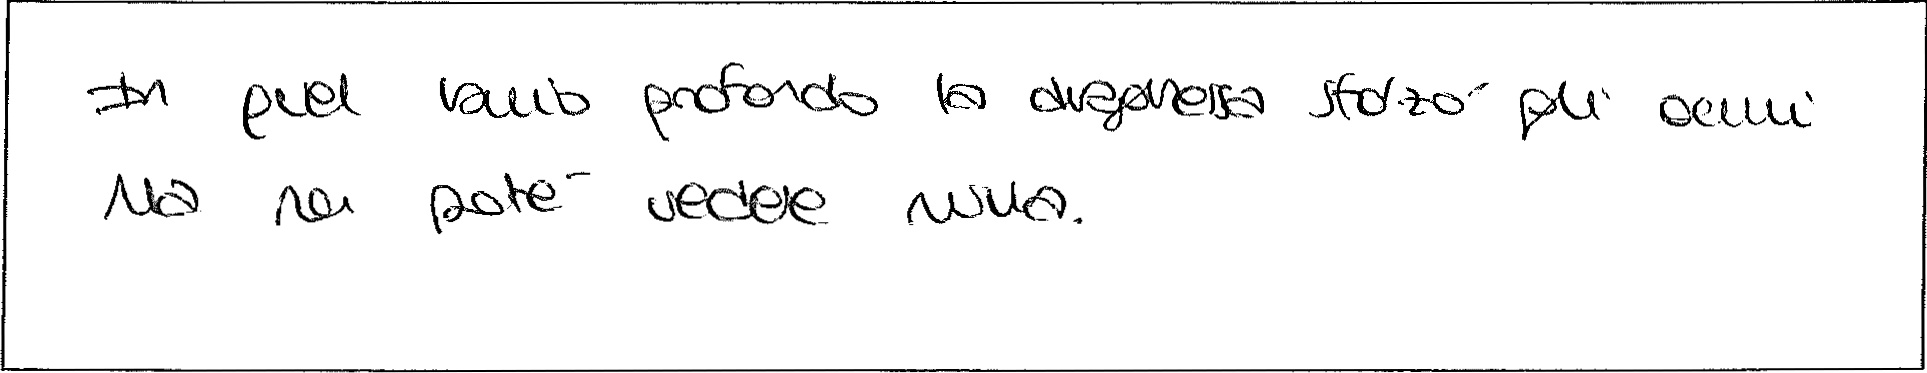 In quel profondo la dragonessa sforzò gli occhi
Ma non poté vedere nulla.